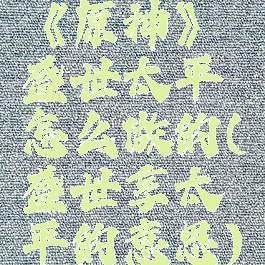 《原神》
盛世太平
怎么做的(
盛世享太
平的意思)